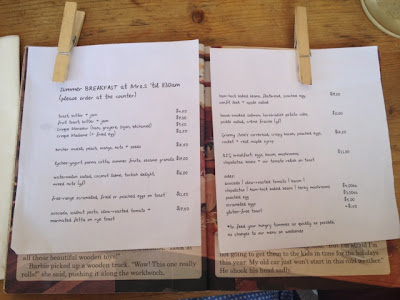 Summer BREAKFAST at Mrs S 'til 11:30am
(please order at the counter)
toast, butter + jam
fruit toast, butter + jam
croque Monsieur (ham, gruyere, dijon, béchamel)
croque Madame (+ fried egg)
bircher muesli, peach, mango, nuts + seeds
Earl-grey panna cotta, summer fruits, sesame granola
watermelon salad, coconut labne, turkish delight,
mixed nuts (gf)
free-range scrambled, fried or poached eggs on toast
avocado, walnut pesto, slow-roasted tomato +
marinated fetta on rye toast
ham-hock baked beans, flatbread, poached egg
confit leek +
house-smoked salmon, horseradish potato cake,
pickle salad, citrus fraiche (gf)
Granny Smith cornbread, crispy bacon, poached eggs,
rocket + real maple syrup
BIG breakfast: eggs, bacon, mushrooms,
chipolatas, beans + oven tomato relish on toast
sides:
avocado | slow-roasted tomato | bacon |
chipolatas | ham-hock baked beans | herby mushrooms
poached egg
scrambled eggs
gluten-free toast
*to feed your hungry tummies as quickly as possible:
no changes to our menu on weekends
all these beautiful wooden toys!"
Barbie picked up a wooden truck. "Wow! This one really
rolls!" she said, pushing it along the workbench.
not going to get to the kids in time for the holidays
this year. My old car just won't start in this cold weather."
He shook his head sadly.